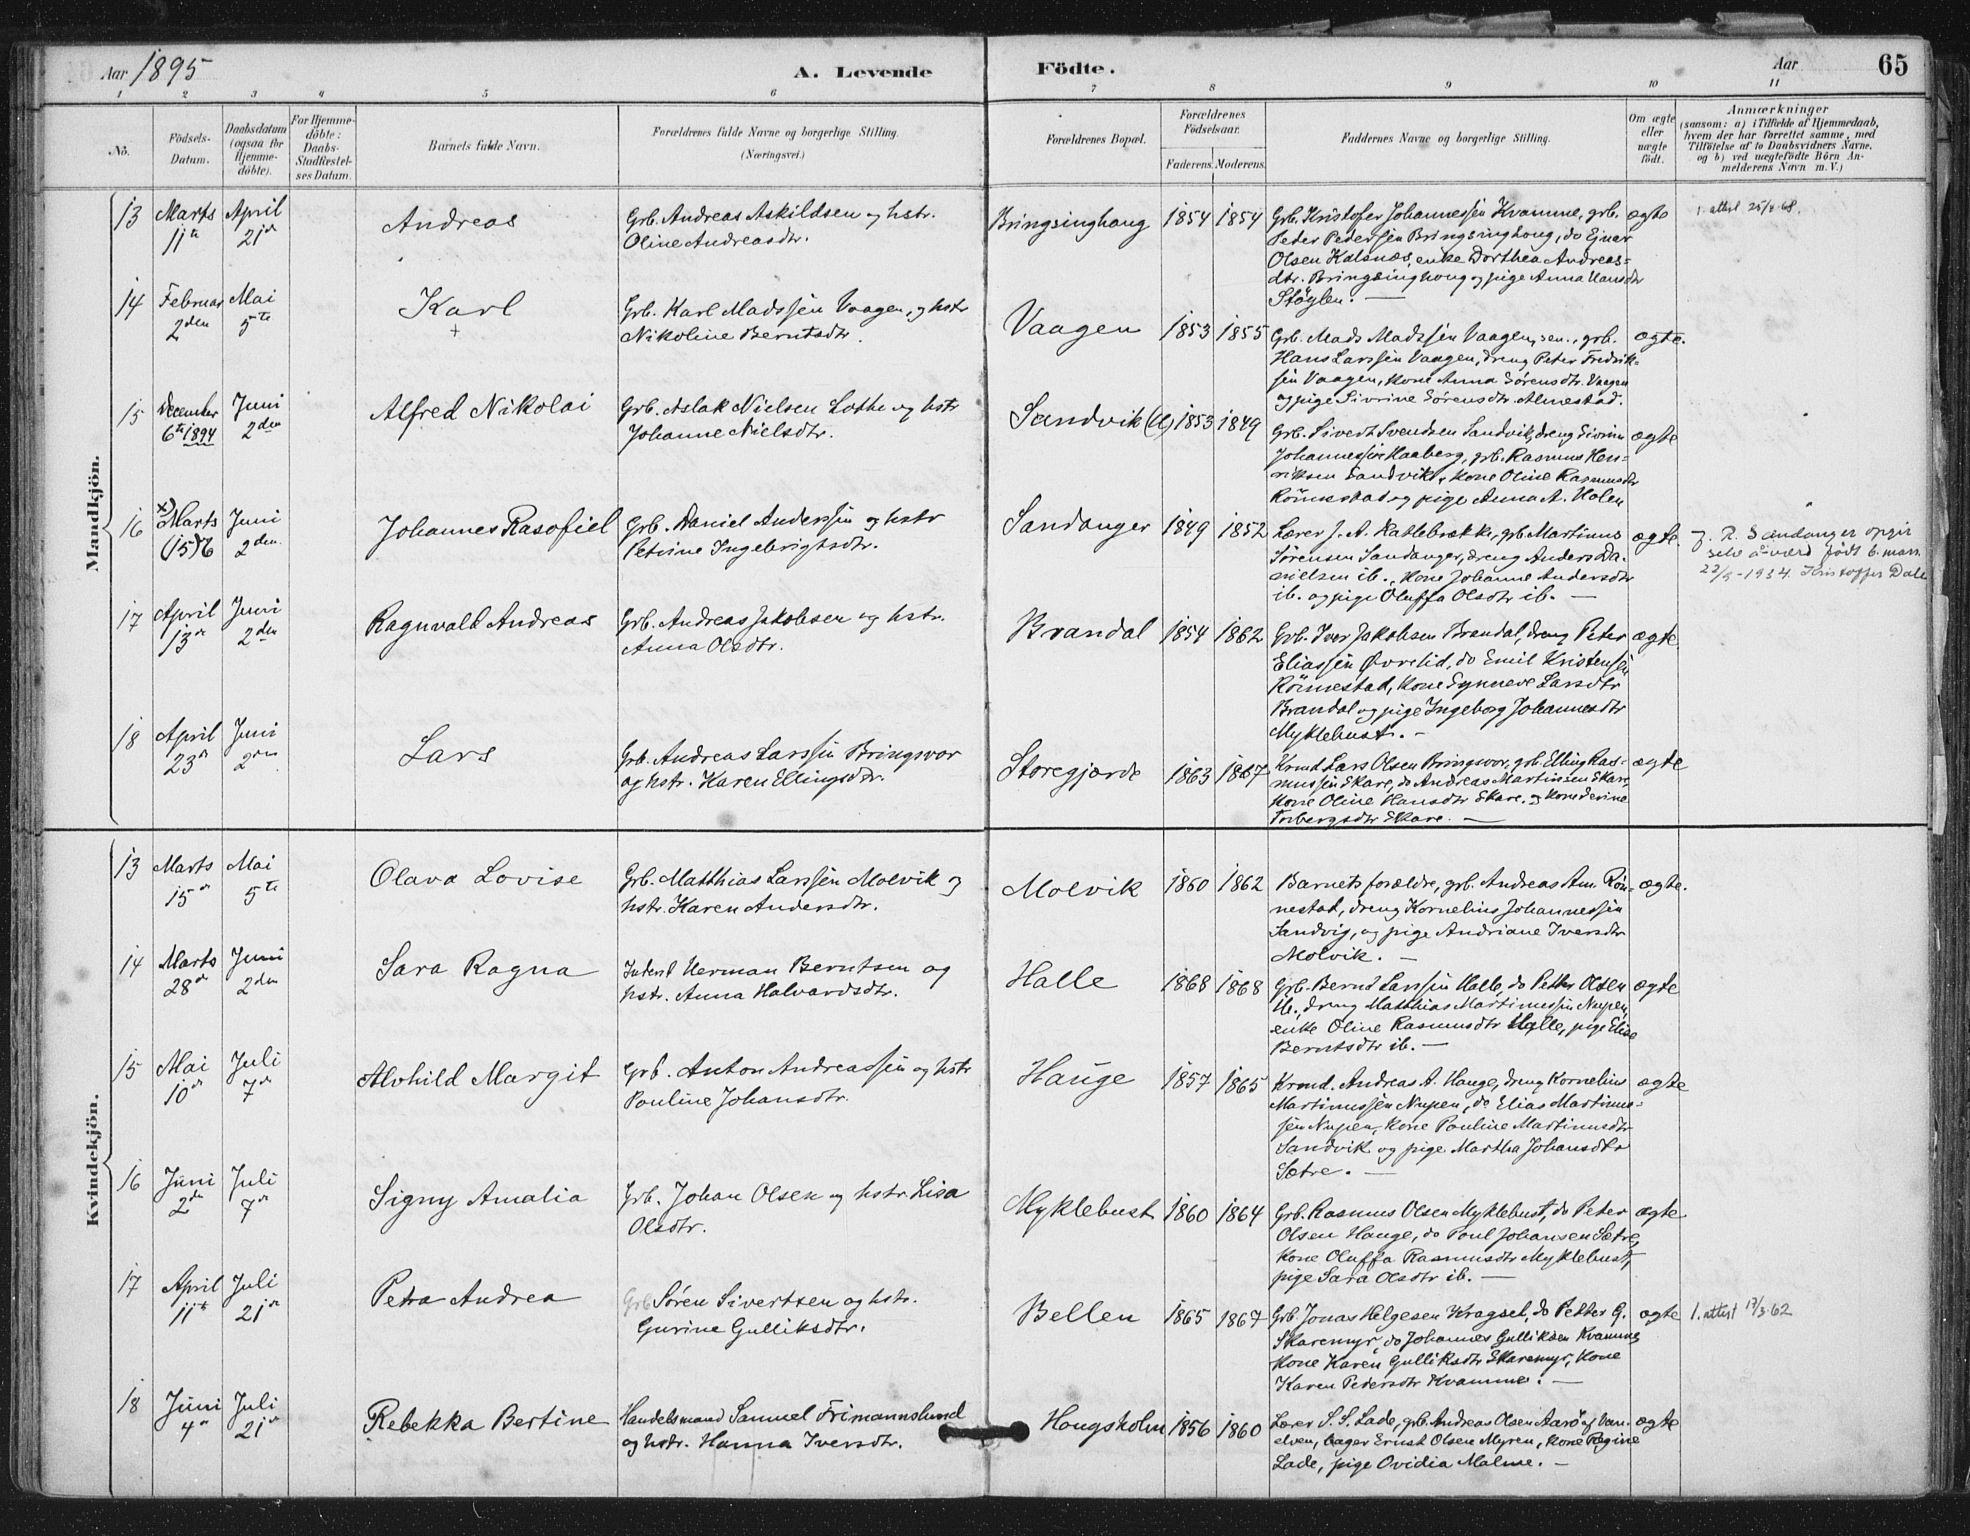 Aar 1895
A. Levende
Födte.
Aar
65
1 2 3 4 5 6 7 8 9 10 11
No.
Födsels-
Datum.
Daabsdatum
(ogsaa for
Hjemme-
döbte).
For Hjemme-
döbte:
Daabs-
Stadfæstel-
ses Datum.
Barnets fulde Navn.
Forældrenes fulde Navne og borgerlige Stilling.
(Næringsvei.)
Forældrenes Bopæl.
Forældrenes
Födselsaar.
Faderens. Moderens.
Faddernes Navne og borgerlige Stilling.
Om ægte
eller
uægte
födt.
Anmærkninger
(saasom: a) i Tilfælde af Hjemmedaab,
hvem der har forrettet samme, med
Tilföielse af to Daabsvidners Navne,
og b) ved uægtefödte Börn An-
melderens Navn m.V.)
Mandkjön.
13 Marts 11te April 21de
Andreas
Grb. Andreas Askildsen og hstr.
Oline Andreasdtr.
Bringsinghaug 1854 1854
Grb. Kristofer Johannessen Kvamme, grb.
Peder Pedersen Bringsinghoug, do Ejnar
Olsen Kalsnæs, enke Dorthea Andreas-
dtr. Bringsinghoug og pige Anna Hansdtr
Støylen. —
ægte
1. attest 25/4 68.
14 Februar 2den Mai 5te
Karl
+
Grb. Karl Madssen Vaagen, og hstr
Nikoline Berntsdtr.
Vaagen 1853 1855
Grb. Mads Madssen Vaagen, sen., grb.
Hans Larssen Vaagen, dreng Peter Fredrik-
sen Vaagen, kone Anna Sörensdtr. Vaagen
og pige Sivrine Sörensdtr. Almestad.
ægte.
15 December 6te 1894 Juni 2den
Alfred Nikolai
Grb. Aslak Nielsen Lothe og hstr
Johanne Nielsdtr.
Sandvik (U) 1853 1849
Grb. Sivert Svendsen Sandvik, dreng Sivrin
Johannessen Haaberg, grb. Rasmus Hen-
riksen Sandvik, kone Oline Rasmusdtr
Rönnestad og pige Anna A. Holen
ægte
16 x) Marts (15) 6 Juni 2den
Johannes Rasofiel
Grb. Daniel Anderssen og hstr
Petrine Ingebrigtsdtr.
Sandanger 1849 1852
Lærer J. A. Kattebrække, grb. Martinus
Sørensen Sandanger, dreng Anders Da-
nielsen ib., kone Johanne Andersdtr
ib. og pige Oluffa Olsdtr ib. —
ægte.
J. R. Sandanger opgir
selv å være født 6. mars.
22/9-1934. Kristoffer Dale
17 April 13de Juni 2den
Ragnvald Andreas
Grb. Andreas Jakobsen og hstr.
Anna Olsdtr.
Brandal 1854 1862
Grb. Iver Jakobsen Brandal, dreng Peter
Eliassen Øvrelid, do Emil Kristensen
Rönnestad, kone Synneve Larsdtr
Brandal og pige Ingeborg Johannesdtr
Myklebust. —
ægte
18 April 23de Juni 2den
Lars
Grb. Andreas Larssen Bringsvor
og hstr. Karen Ellingsdtr.
Storegjærde 1863 1867
Krmd Lars Olsen Bringsvor, grb. Elling Ras-
mussen Skare, do Andreas Martinsen Skare,
kone Oline Hansdtr Skare. og kone Serine
Torbergsdtr Skare. —
ægte
Kvindekjön.
13 Marts 15de Mai 5te
Olava Lovise
Grb. Matthias Larssen Molvik og
hstr. Karen Andersdtr.
Molvik 1860 1862
Barnets forældre, grb. Andreas Am. Rön-
nestad, dreng Kornelius Johannessen
Sandvig, og pige Andriane Iversdtr
Molvik. —
ægte.
14 Marts 28de Juni 2den
Sara Ragna
Inderst Herman Berntsen og
hstr. Anna Halvardsdtr.
Halle 1868 1868
Grb. Bernt Larssen Halle, do Petter Olsen
ib., dreng Matthias Martinussen Nupen,
enke Oline Rasmusdtr Halle, pige Elise
Berntsdtr ib. —
ægte
15 Mai 10de Juli 7de
Alvhild Margit
Grb. Anton Andreassen og hstr
Pouline Johansdtr.
Hauge 1857 1865
Krmd. Andreas A. Hauge, dreng Kornelius
Martinussen Nupen, do Elias Martinus-
sen Nupen, kone Pauline Martinusdtr
Sandvik og pige Martha Johansdtr
Sætre. —
ægte
16 Juni 2den Juli 7de
Signy Amalia
Grb. Johan Olsen og hstr. Lisa
Olsdtr.
Myklebust 1860 1864
Grb. Rasmus Olsen Myklebust, do Peter
Olsen Hauge, do Poul Johansen Sætre,
kone Oluffa Rasmusdtr Myklebust,
pige Sara Olsdtr ib. —
ægte
17 April 11te Juli 21de
Petra Andrea
Grb Søren Sivertsen og hstr.
Gurine Gulliksdtr.
Bellen 1865 1867
Grb. Jonas Helgesen Kragset, do Petter G.
Skaremyr, do Johannes Gulliksen Kvamme
kone Karen Gulliksdtr Skaremyr, kone
Karen Pedersdtr Kvamme. —
ægte
1. attest 17/3 62
18 Juni 4de Juli 21de
Rebekka Bertine
Handelsmand Samuel Frimannslund
og hstr. Hanna Iversdtr.
Hougsholm 1856 1860
Lærer S. S. Lade, grb. Andreas Olsen Aarö af Van-
elven, bager Ernst Olsen Myren, kone Regine
Lade, pige Ovidia Malme. —
ægte